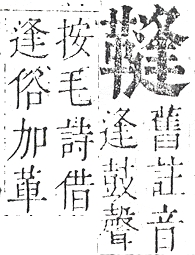 韼
舊註音
逢鼓聲
按毛詩借
逢俗加革